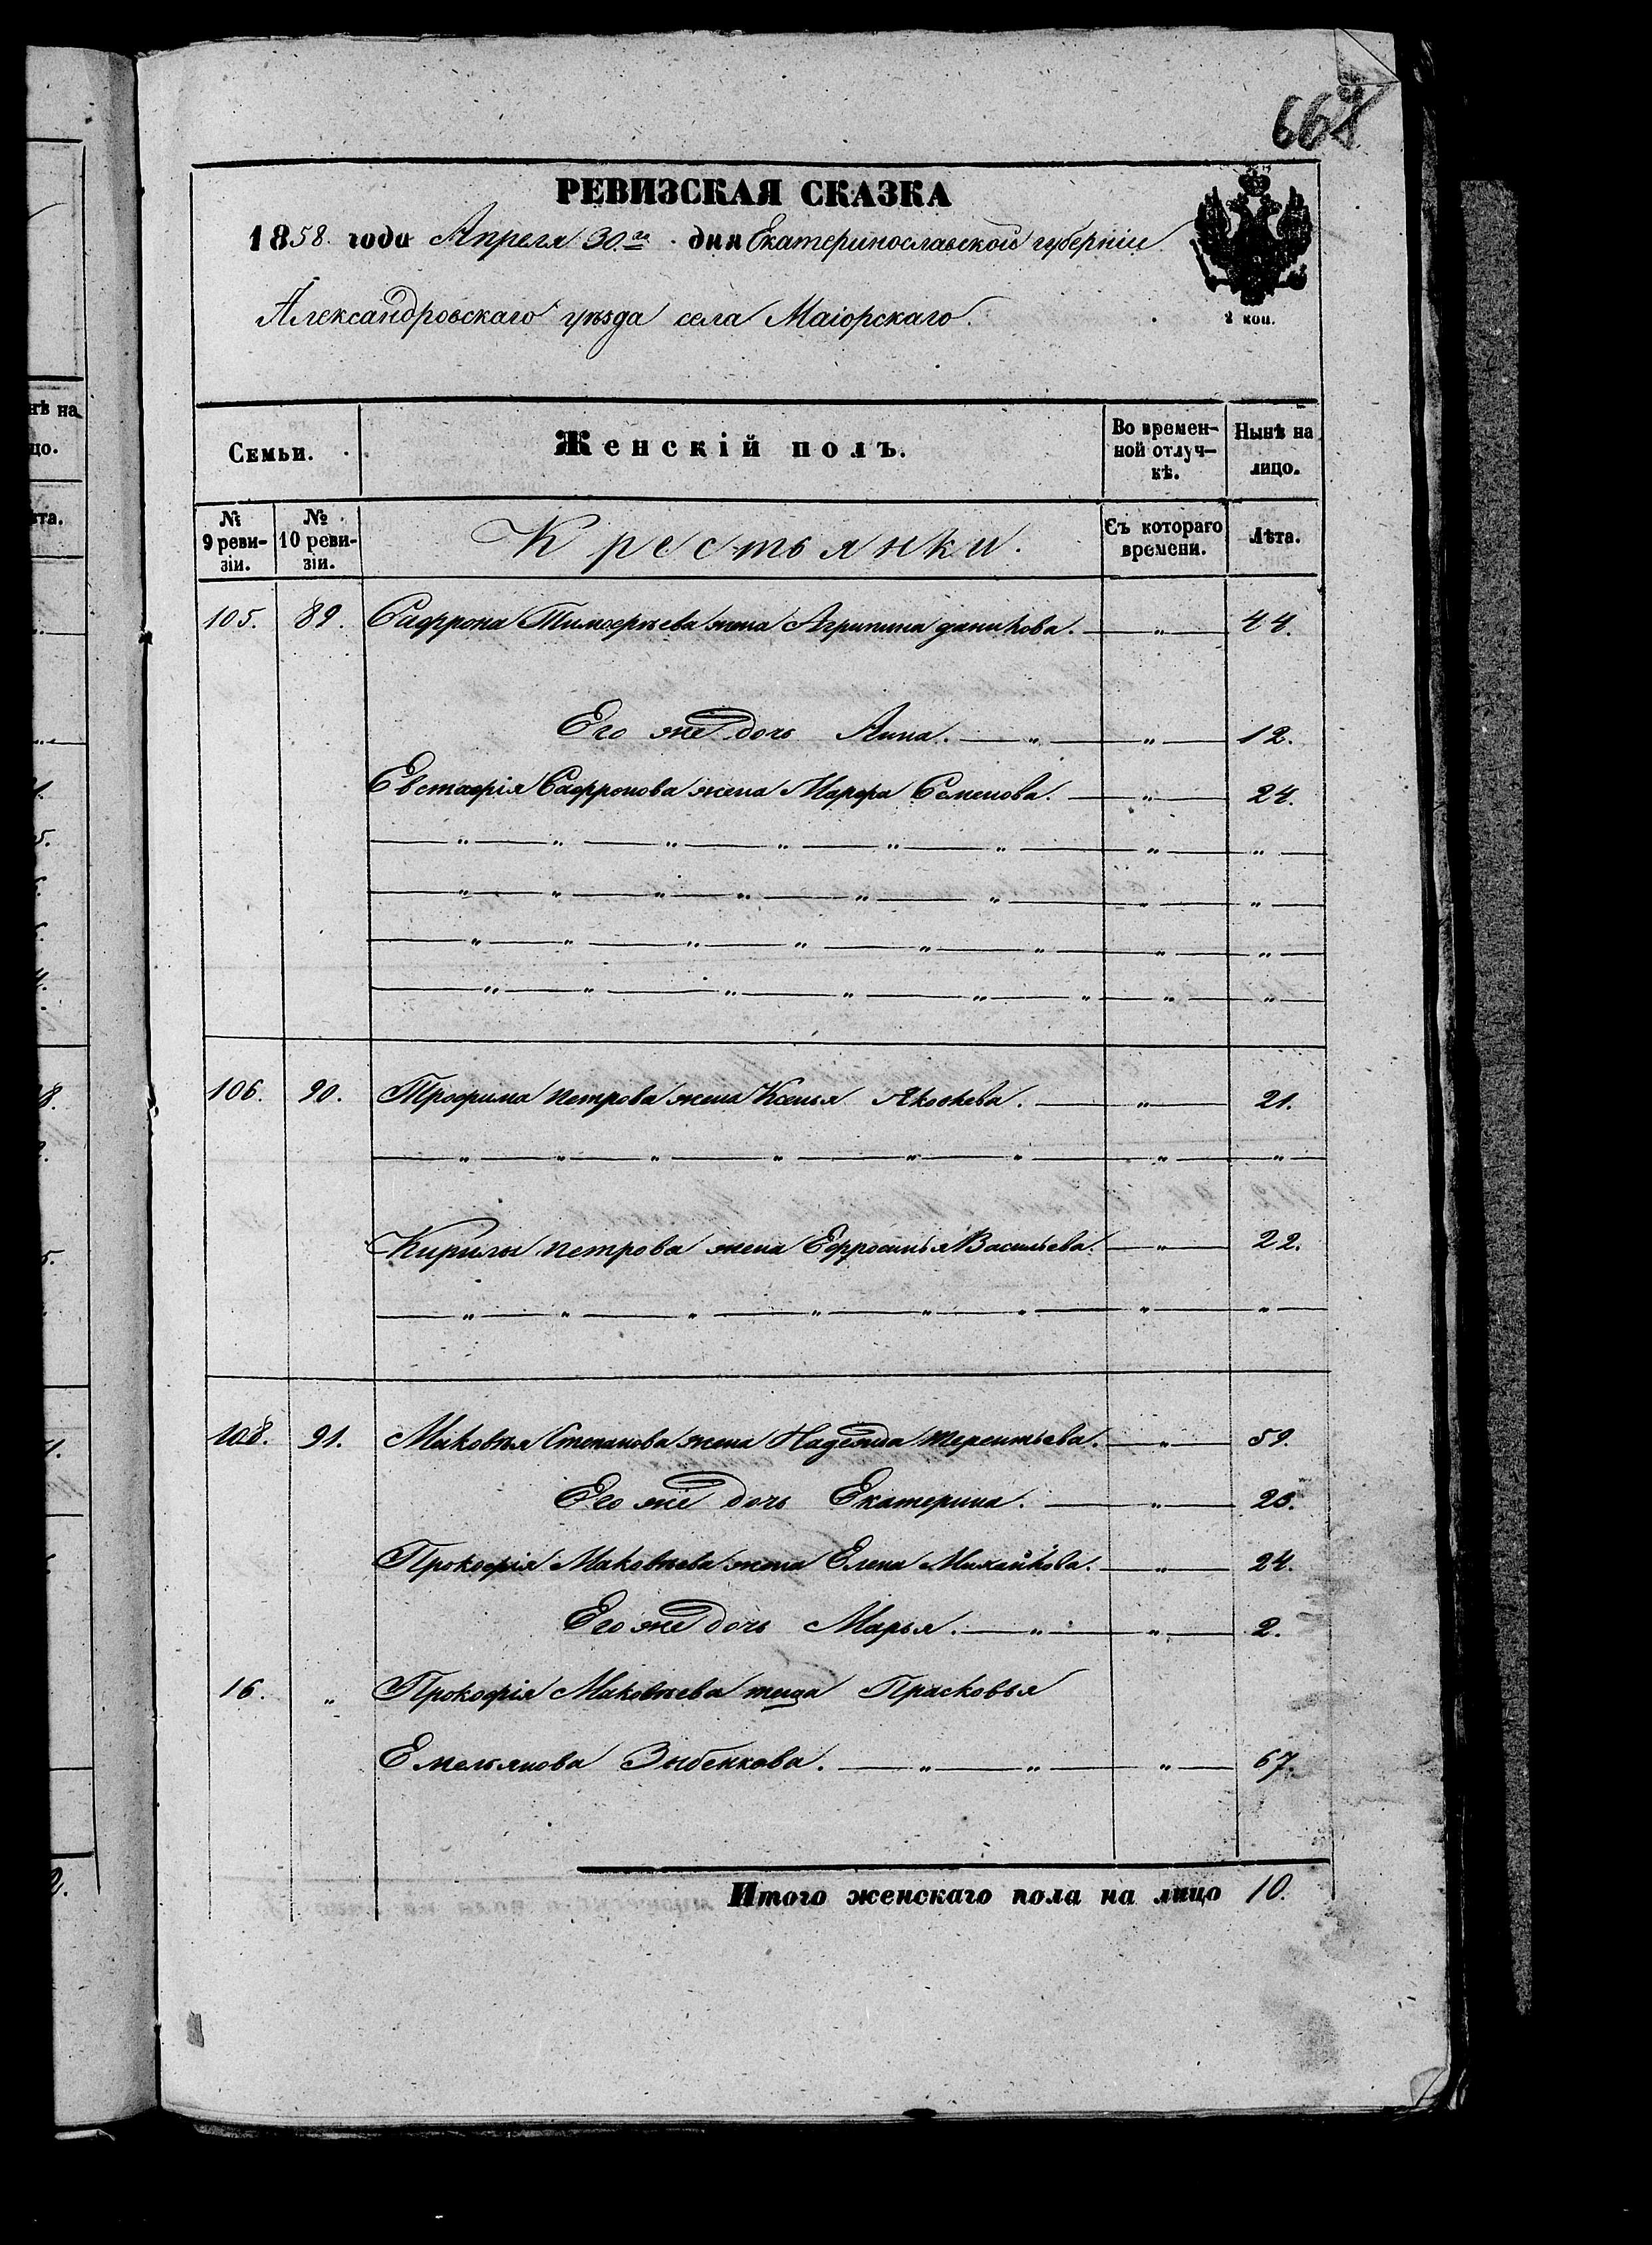 РЕВИЗСКАЯ СКАЗКА
1858. года Апреля 30.го дня Екатеринославской губерніи
Александровскаго уѣзда села Маіорскаго.
2 коп.
Семьи. Женскій полъ. Во времен- ной отлуч- кѣ. Нынѣ на лицо.
№ 9 реви- зіи. № 10 реви- зіи. Крестьянки. Съ котораго времени. Лѣта.
105. 89. Сафрона Тимофѣева жена Агрипина данилова. — „ — 44.
Его же дочь Анна. — „ — „ — 12.
Евстафія Сафронова жена Марфа Семенова. — „ — 24.
— „ — „ — „ — „ — „ — „ — „ — „ —
— „ — „ — „ — „ — „ — „ — „ — „ —
— „ — „ — „ — „ — „ — „ — „ — „ —
— „ — „ — „ — „ — „ — „ — „ — „ —
106. 90. Трофима петрова жена Ксенья Яковлева. — „ — 21.
— „ — „ — „ — „ — „ — „ — „ — „ —
Кирилы петрова жена Ефросинья Васильева. — „ — 22.
— „ — „ — „ — „ — „ — „ — „ — „ —
108. 91. Маковѣя Степанова жена Надежда терентьева. — „ — 59.
Его же дочь Екатерина. — „ — 23.
Прокофія Маковѣева жена Елена Михайлова. — „ — 24.
Его же дочь Марья. — „ — „ — 2.
16. „ Прокофія Маковѣева теща Прасковья
Емельянова Зыбенкова. — „ — „ — „ — 67.
Итого женскаго пола на лицо 10.